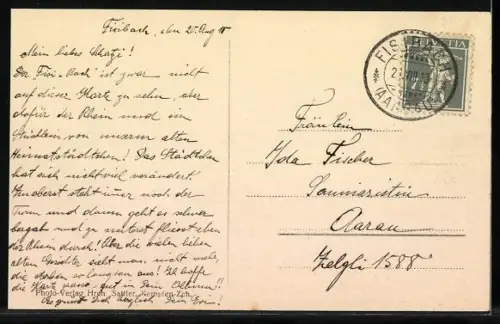 Fisibach, den 20. Aug 18
Mein liebes Schatzi!
Der Fisi-Bach ist zwar nicht
auf dieser Karte zu sehen, aber
dafür der Rhein und im
von unserm alten
Heimatstädtchen! Das Städtchen
hat sich nicht viel verändert.
Zuoberst steht immer noch der
Turm und dann geht es schwer
bergab und zu unterst fliesst eben
der Rhein durch! Aber die vielen lieben
alten Gesichter sieht man nicht mehr,
die so aus! Ich hoffe
die Karte passe gut in Dein Album!!
Es grüsst Dich herzlich Dein
Photo-Verlag Hrch. Sattler, Kempten-Zch.
FISIBACH
(AARGAU)
HELVETIA
Fräulein
Ida Fischer
Aarau
Zelgli 1588